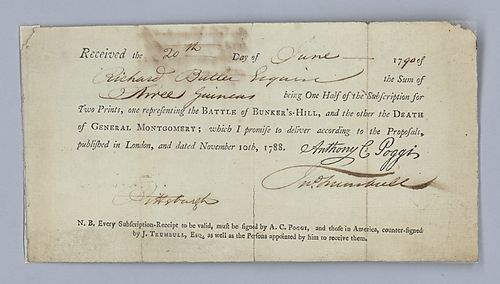 Received the 20th Day of June 1790 of
Richard Butler Esquire the Sum of
Three Guineas being One Half of the Subscription for
Two Prints, one representing the BATTLE OF BUNKER'S-HILL, and the other the DEATH
OF GENERAL MONTGOMERY; which I promise to deliver according to the Proposals,
published in London, and dated November 10th, 1788. Anthony C. Poggi
Jno Trumbull
Pittsburgh
N. B. Every Subscription-Receipt to be valid, must be signed by A. C. POGGI, and those in America, counter-signed
by J. TRUMBULL, ESQ; as well as the Persons appointed by him to receive them.